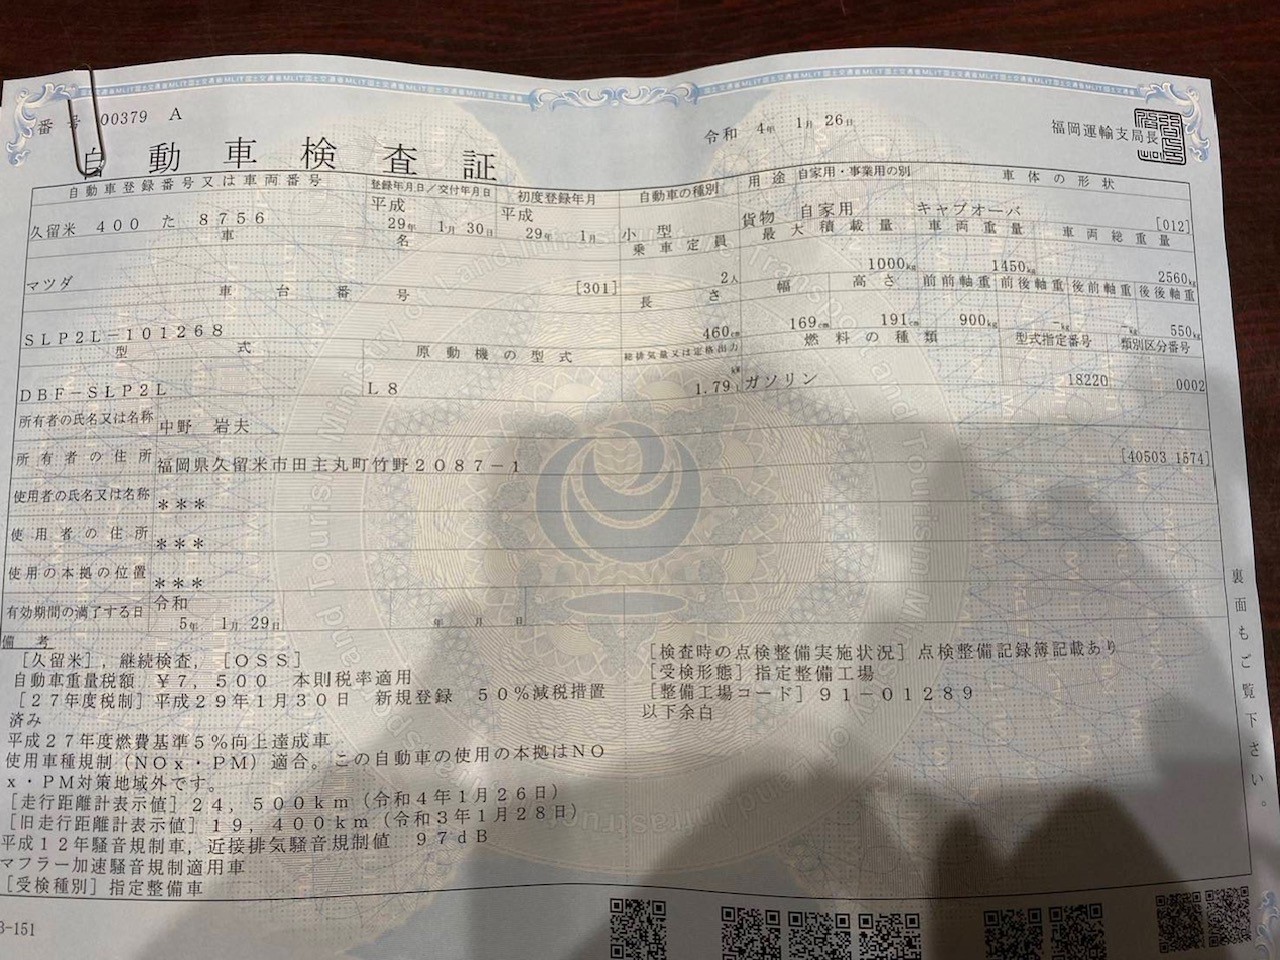 国土交通省MLIT国土交通省MLIT国土交通省MLIT
番号 00379 A
令和 4年 1月 26日
福岡運輸支局長
自動車検査証
自動車登録番号又は車両番号 登録年月日/交付年月日 初度登録年月 自動車の種別 用途 自家用・事業用の別 車体の形状
久留米 400 た 8756 平成 29年 1月 30日 平成 29年 1月 小型 貨物 自家用 キャブオーバ [012]
車名 乗車定員 最大積載量 車両重量 車両総重量
マツダ [301] 2人 1000kg 1450kg 2560kg
車台番号 長さ 幅 高さ 前前軸重 前後軸重 後前軸重 後後軸重
SLP2L-101268 460cm 169cm 191cm 900kg -kg -kg 550kg
型式 原動機の型式 総排気量又は定格出力 燃料の種類 型式指定番号 類別区分番号
DBF-SLP2L L8 1.79 kW ガソリン 18220 0002
所有者の氏名又は名称 中野 岩夫
所有者の住所 福岡県久留米市田主丸町竹野2087-1 [40503 1574]
使用者の氏名又は名称 ***
使用者の住所 ***
使用の本拠の位置 ***
有効期間の満了する日 令和 5年 1月 29日 年 月 日
備考
[久留米],継続検査,[OSS]
自動車重量税額 ¥7,500 本則税率適用
[27年度税制]平成29年1月30日 新規登録 50%減税措置
済み
平成27年度燃費基準5%向上達成車
使用車種規制(NOx・PM)適合。この自動車の使用の本拠はNO
x・PM対策地域外です。
[走行距離計表示値]24,500km(令和4年1月26日)
[旧走行距離計表示値]19,400km(令和3年1月28日)
平成12年騒音規制車,近接排気騒音規制値 97dB
マフラー加速騒音規制適用車
[受検種別]指定整備車
[検査時の点検整備実施状況]点検整備記録簿記載あり
[受検形態]指定整備工場
[整備工場コード]91-01289
以下余白
裏面もご覧下さい。
3-151